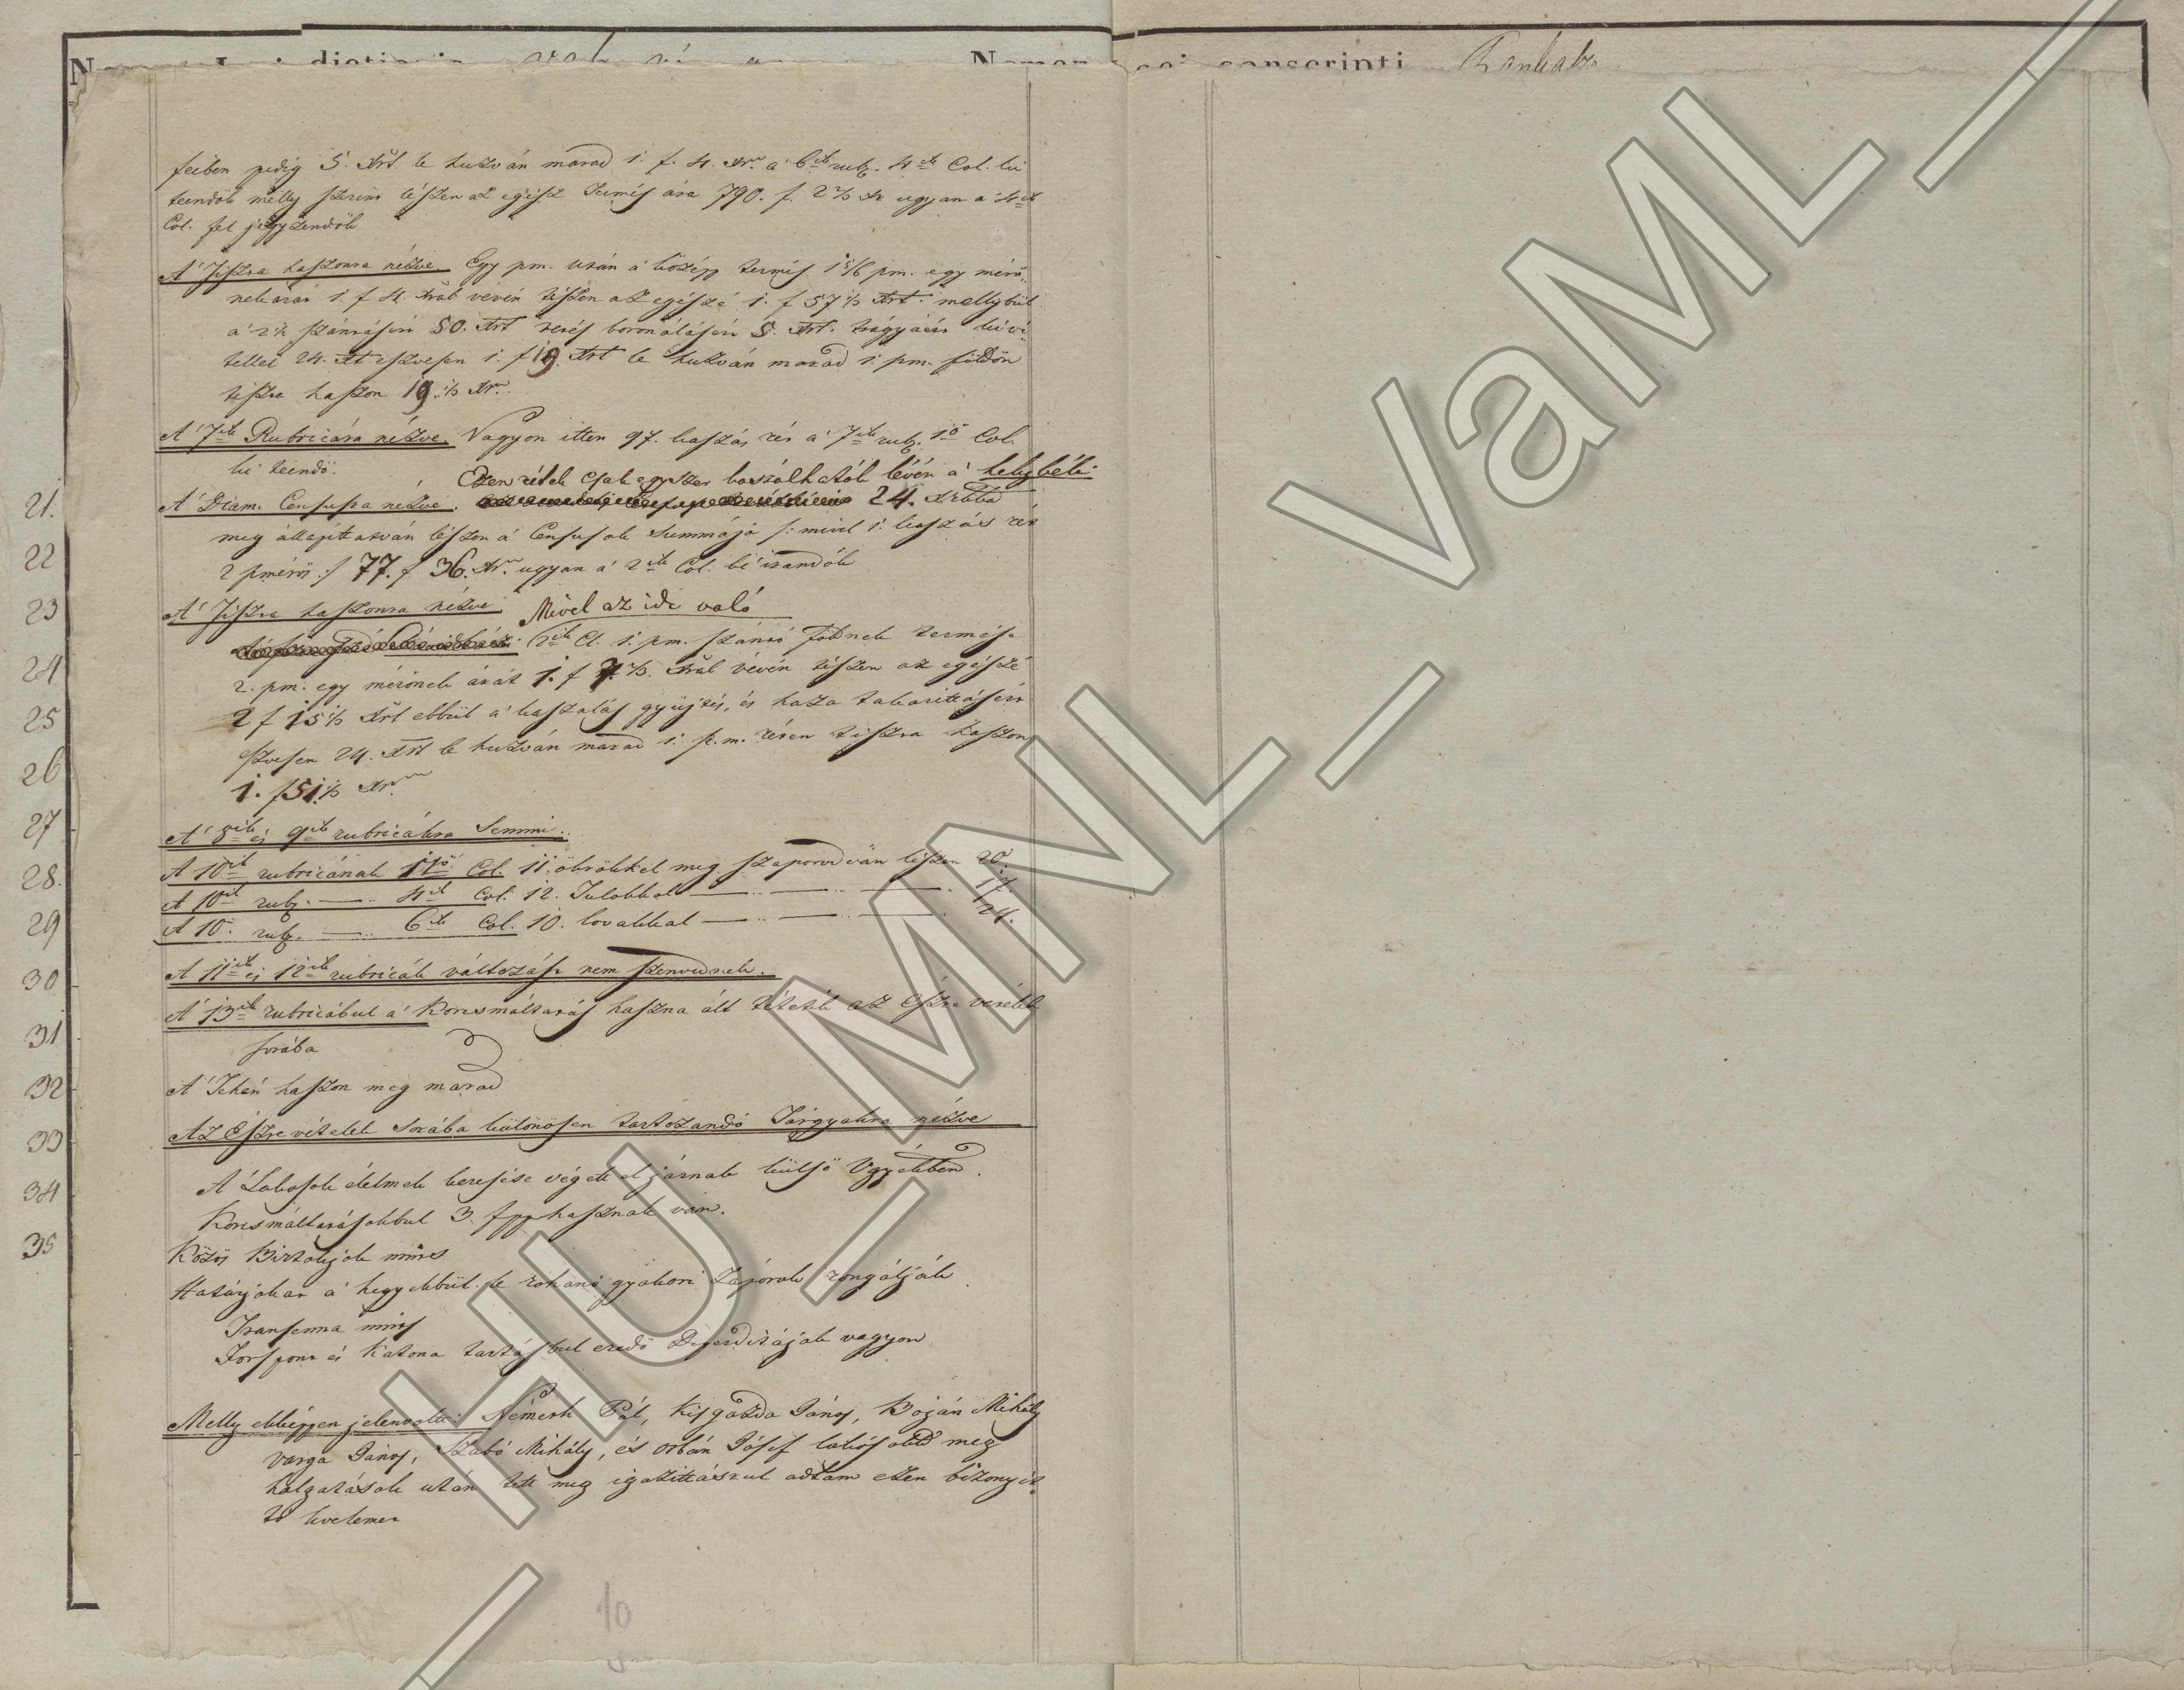 feiben pedig 5. Xrt le huzván marad 1. f. 4. Xr. a' 6ik rub. 4ik Col. ki
teendők melly szerint lészen az egész Termés ára 790. f. 2 2/3 Xr ugyan a' 4ik
Col. fel jegyzendők
A' Tiszta haszonra nézve. Egy pm. után a' közép termés 1 5/6 pm. egy mérő
nek árát 1. f 4. Xral vévén tészen az egészé 1. f 57 1/3 Xrt. mellybül
a' szántásért 50. Xrt vetés boronálásért 5. Xrt. trágyáért ki vi
tellel 24. Xrt eszvesen 1. f 19. Xrt le huzván marad 1. pm. földön
tiszta haszon 19. 1/3 Xr.
A' 7ik Rubricára nézve. Vagyon itten 97. kaszás rét a' 7ik rub. 1ső Col.
ki teendő.
Ezen rétek csak egyszer kaszálhatók lévén a' helybéli
A' Diam. Censusra nézve. 24. Xrbba
meg állapittatván lészen a' Censusok Summája /: mivel 1. kaszás rét
2 pmérős :/ 77. f 36. Xr. ugyan a' 2ik Col. bé irandók
A' Tiszta haszonra nézve. Mivel az ide való
2ik Cl. 1. pm. szántó földnek termése
2. pm. egy mérőnek árát 1. f 7. 2/3. Xral vévén tészen az egészé
2 f 15 1/3 Xrt ebbül a' kaszálás gyüjtés, és haza takarittásért
eszvesen 24. Xrt le huzván marad 1. p.m. réten tiszta haszon
1. f 51. 1/3 Xr.
A' 8ik és 9ik rubricákra Semmi.
A 10ik rubricának 1ső Col. 11. ökrökkel meg szaporodván lészen 20.
A 10ik rub. — 4ik Col. 12. Tulokkal — — — 17.
A 10. rub. — 6ik Col. 10. lovakkal — — — 24.
A 11ik és 12ik rubricák változást nem szenvednek.
A' 13ik rubricábul a' Korcsmáltatás haszna ált tétetik az Észre vételek
sorába
A' Tehén haszon meg marad
Az Észrevételek Sorába különösen tartozandó Tárgyakra nézve
A' Lakosok élelmek keresése végett el járnak külső Vgyekben.
Korcsmáltatásokbul 3 fpp hasznok van.
Közös Birtokjok nincs
Határjokat a' hegyekbül le rohanó gyakori Záporok rongálják.
Transenna nincs
Forspont és Katona tartásbul eredő Deperditájok vagyon
Melly ekképpen jelenvolt: Németh Pál, Kisgazda János, Boján Mihály
Varga János, Szabó Mihály, és Orbán Jósef lakósokk meg
halgatások után tett meg igazittásrul adtam ezen bizonyit
tó levelemet
21.
22
23
24
25
26
27
28.
29
30
31
32
33
34
35
10
conscripti
HU_MNL_VaML_